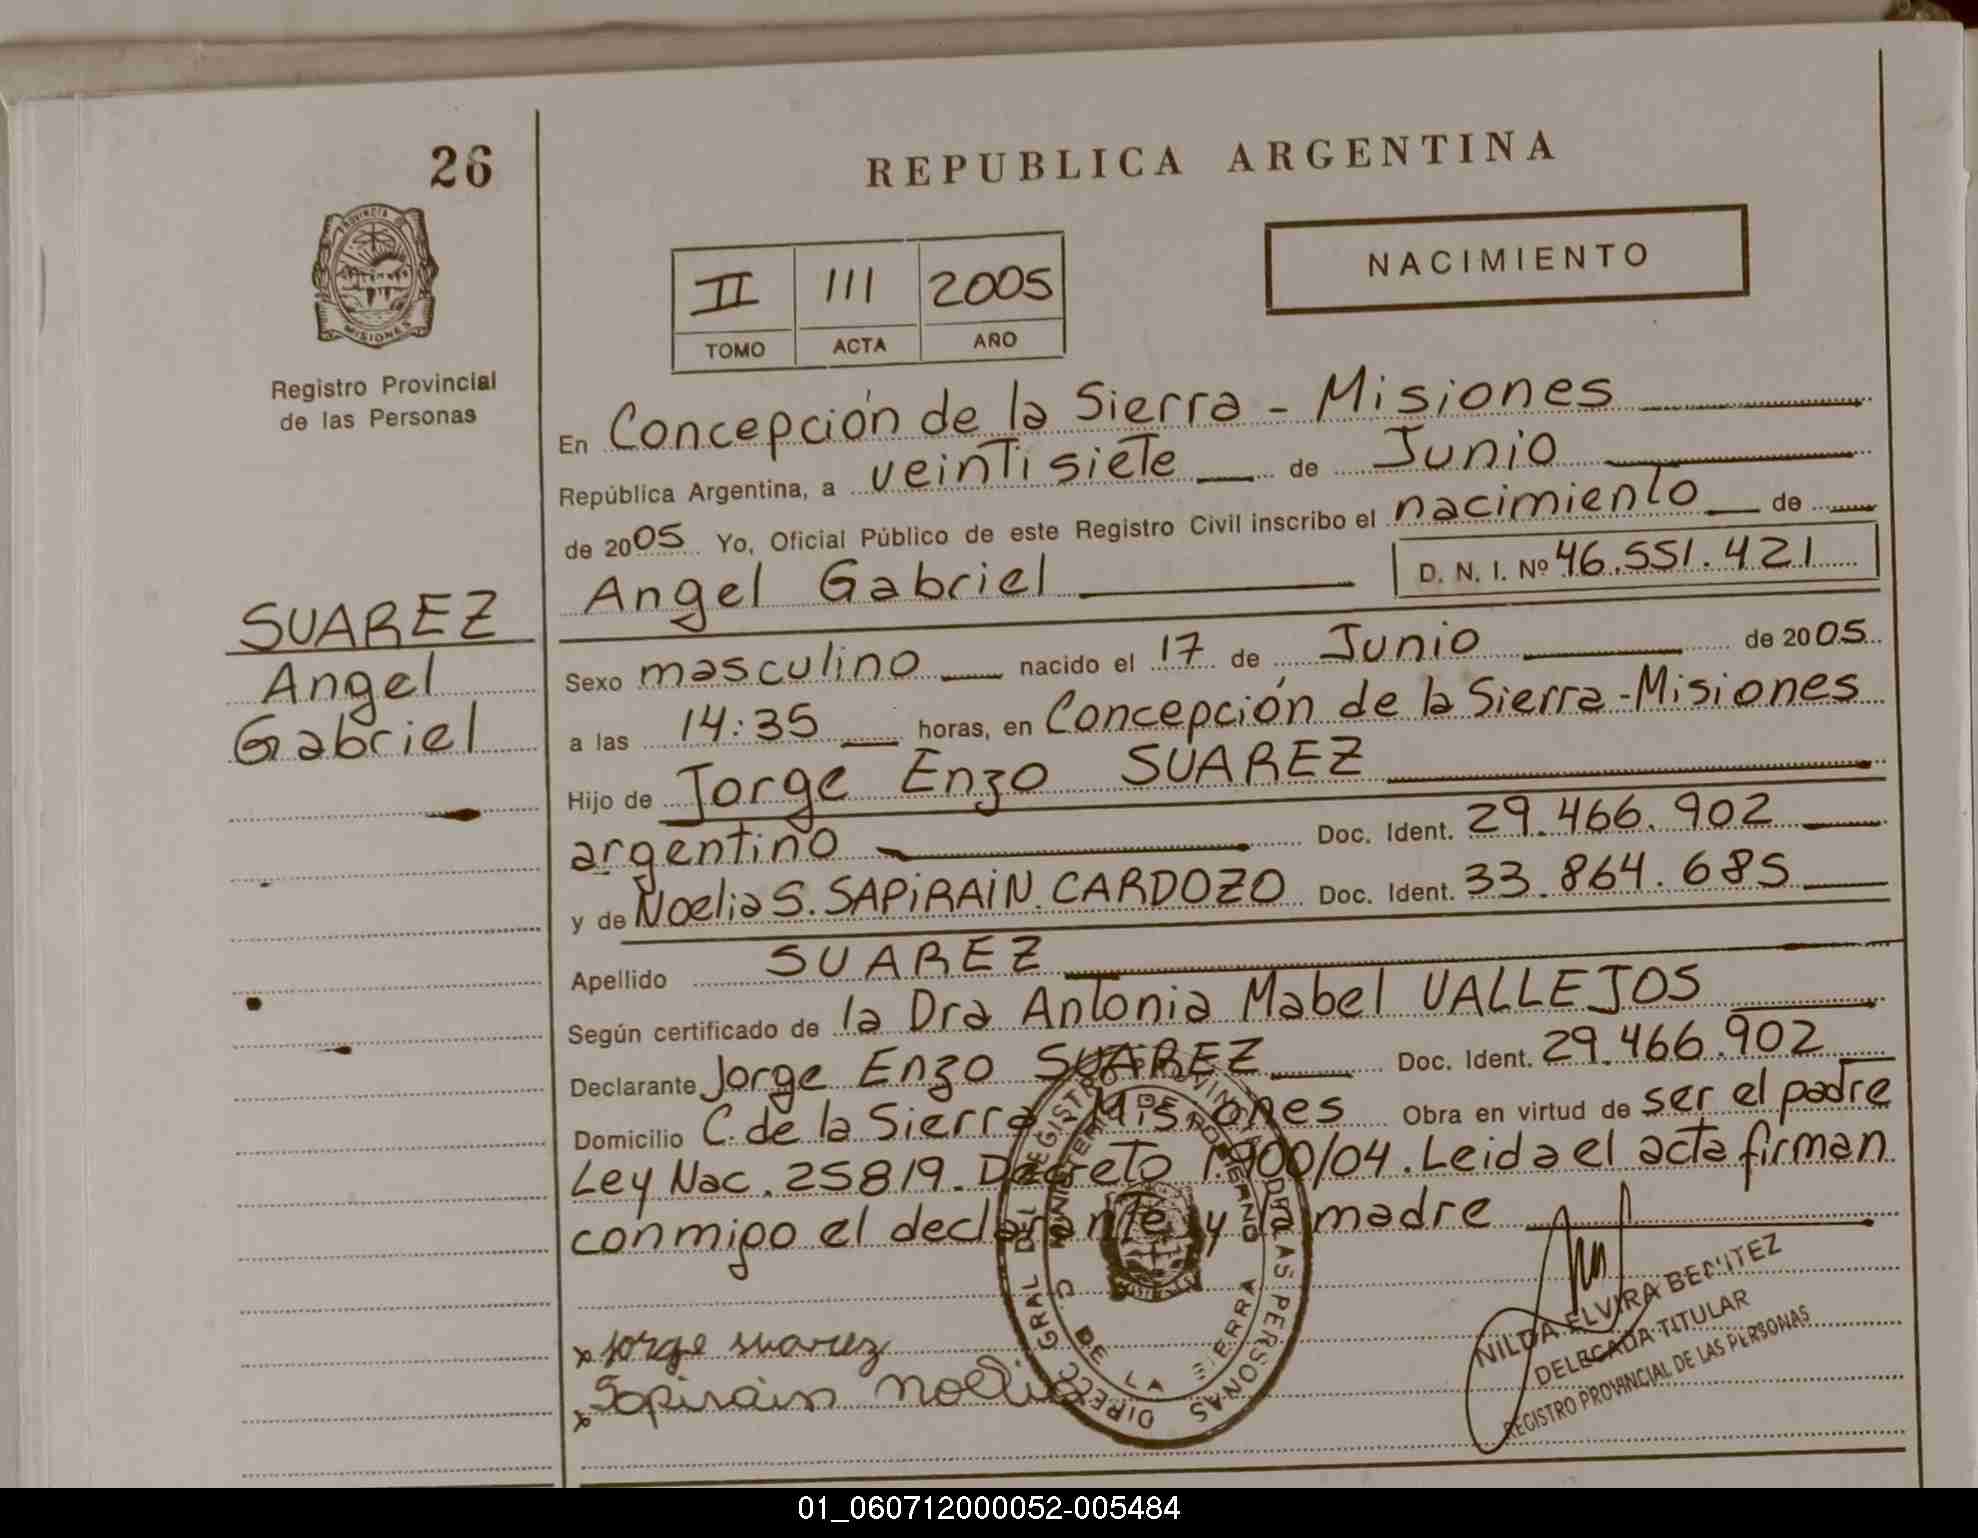 26
REPUBLICA ARGENTINA
PROVINCIA D
MISIONES
Registro Provincial
de las Personas
NACIMIENTO
II 111 2005
TOMO ACTA AÑO
En Concepción de la Sierra - Misiones
República Argentina, a veintisiete de Junio
de 2005 Yo, Oficial Público de este Registro Civil inscribo el nacimiento de
Angel Gabriel D. N. I. Nº 46.551.421
SUAREZ
Angel
Gabriel
Sexo masculino nacido el 17 de Junio de 2005
a las 14:35 horas, en Concepción de la Sierra-Misiones
Hijo de Jorge Enzo SUAREZ
argentino Doc. Ident. 29.466.902
y de Noelia S. SAPIRAIN.CARDOZO Doc. Ident. 33.864.685
Apellido SUAREZ
Según certificado de la Dra Antonia Mabel VALLEJOS
Declarante Jorge Enzo SUAREZ Doc. Ident. 29.466.902
Domicilio C. de la Sierra Misiones Obra en virtud de ser el padre
Ley Nac. 25819. Decreto 1900/04. Leida el acta firman
conmigo el declarante y la madre
x Jorge suarez
x Sapirain noelia
DIRECC GRAL DEL REGISTRO PROVIN DE LAS PERSONAS
MINISTERIO DE GOBIERNO
C. DE LA SIERRA
NILDA ELVIRA BENITEZ
DELEGADA TITULAR
REGISTRO PROVINCIAL DE LAS PERSONAS
01_060712000052-005484